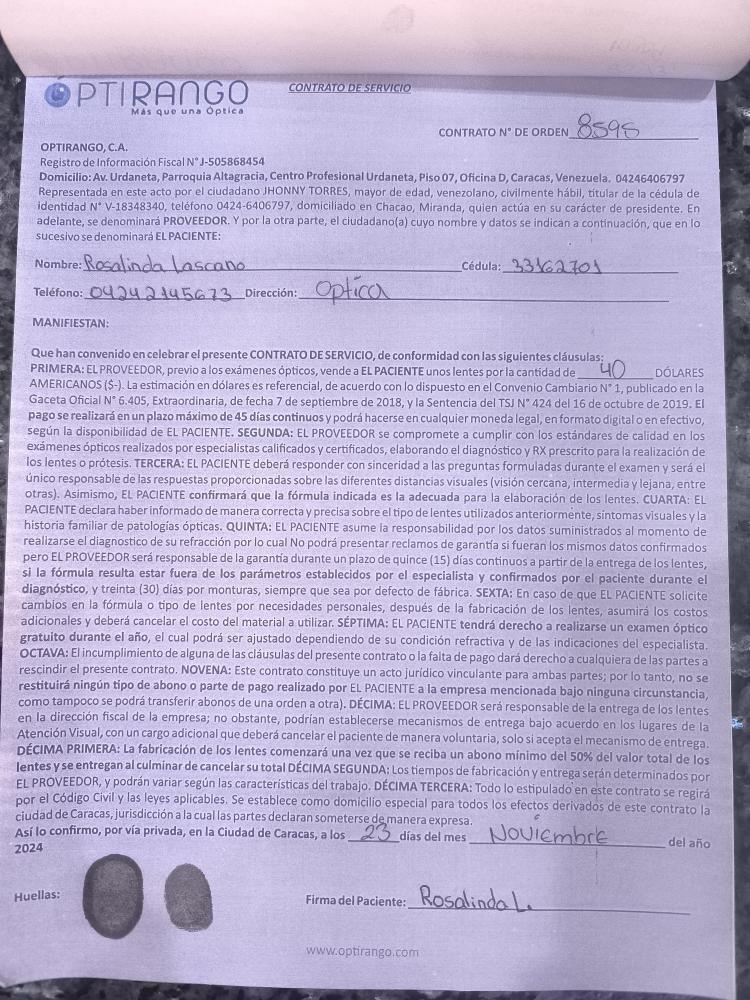 ÓPTIRANGO
Más que una Óptica
CONTRATO DE SERVICIO
CONTRATO N° DE ORDEN 8595
OPTIRANGO, C.A.
Registro de Información Fiscal N° J-505868454
Domicilio: Av. Urdaneta, Parroquia Altagracia, Centro Profesional Urdaneta, Piso 07, Oficina D, Caracas, Venezuela. 04246406797
Representada en este acto por el ciudadano JHONNY TORRES, mayor de edad, venezolano, civilmente hábil, titular de la cédula de
identidad N° V-18348340, teléfono 0424-6406797, domiciliado en Chacao, Miranda, quien actúa en su carácter de presidente. En
adelante, se denominará PROVEEDOR. Y por la otra parte, el ciudadano(a) cuyo nombre y datos se indican a continuación, que en lo
sucesivo se denominará EL PACIENTE:
Nombre: Rosalinda Lascano Cédula: 33162701
Teléfono: 04242145673 Dirección: Optica
MANIFIESTAN:
Que han convenido en celebrar el presente CONTRATO DE SERVICIO, de conformidad con las siguientes cláusulas:
PRIMERA: EL PROVEEDOR, previo a los exámenes ópticos, vende a EL PACIENTE unos lentes por la cantidad de 40 DÓLARES
AMERICANOS ($-). La estimación en dólares es referencial, de acuerdo con lo dispuesto en el Convenio Cambiario N° 1, publicado en la
Gaceta Oficial N° 6.405, Extraordinaria, de fecha 7 de septiembre de 2018, y la Sentencia del TSJ N° 424 del 16 de octubre de 2019. El
pago se realizará en un plazo máximo de 45 días continuos y podrá hacerse en cualquier moneda legal, en formato digital o en efectivo,
según la disponibilidad de EL PACIENTE. SEGUNDA: EL PROVEEDOR se compromete a cumplir con los estándares de calidad en los
exámenes ópticos realizados por especialistas calificados y certificados, elaborando el diagnóstico y RX prescrito para la realización de
los lentes o prótesis. TERCERA: EL PACIENTE deberá responder con sinceridad a las preguntas formuladas durante el examen y será el
único responsable de las respuestas proporcionadas sobre las diferentes distancias visuales (visión cercana, intermedia y lejana, entre
otras). Asimismo, EL PACIENTE confirmará que la fórmula indicada es la adecuada para la elaboración de los lentes. CUARTA: EL
PACIENTE declara haber informado de manera correcta y precisa sobre el tipo de lentes utilizados anteriormente, síntomas visuales y la
historia familiar de patologías ópticas. QUINTA: EL PACIENTE asume la responsabilidad por los datos suministrados al momento de
realizarse el diagnostico de su refracción por lo cual No podrá presentar reclamos de garantía si fueran los mismos datos confirmados
pero EL PROVEEDOR será responsable de la garantía durante un plazo de quince (15) días continuos a partir de la entrega de los lentes,
si la fórmula resulta estar fuera de los parámetros establecidos por el especialista y confirmados por el paciente durante el
diagnóstico, y treinta (30) días por monturas, siempre que sea por defecto de fábrica. SEXTA: En caso de que EL PACIENTE solicite
cambios en la fórmula o tipo de lentes por necesidades personales, después de la fabricación de los lentes, asumirá los costos
adicionales y deberá cancelar el costo del material a utilizar. SÉPTIMA: EL PACIENTE tendrá derecho a realizarse un examen óptico
gratuito durante el año, el cual podrá ser ajustado dependiendo de su condición refractiva y de las indicaciones del especialista.
OCTAVA: El incumplimiento de alguna de las cláusulas del presente contrato o la falta de pago dará derecho a cualquiera de las partes a
rescindir el presente contrato. NOVENA: Este contrato constituye un acto jurídico vinculante para ambas partes; por lo tanto, no se
restituirá ningún tipo de abono o parte de pago realizado por EL PACIENTE a la empresa mencionada bajo ninguna circunstancia,
como tampoco se podrá transferir abonos de una orden a otra). DÉCIMA: EL PROVEEDOR será responsable de la entrega de los lentes
en la dirección fiscal de la empresa; no obstante, podrían establecerse mecanismos de entrega bajo acuerdo en los lugares de la
Atención Visual, con un cargo adicional que deberá cancelar el paciente de manera voluntaria, solo si acepta el mecanismo de entrega.
DÉCIMA PRIMERA: La fabricación de los lentes comenzará una vez que se reciba un abono mínimo del 50% del valor total de los
lentes y se entregan al culminar de cancelar su total DÉCIMA SEGUNDA: Los tiempos de fabricación y entrega serán determinados por
EL PROVEEDOR, y podrán variar según las características del trabajo. DÉCIMA TERCERA: Todo lo estipulado en este contrato se regirá
por el Código Civil y las leyes aplicables. Se establece como domicilio especial para todos los efectos derivados de este contrato la
ciudad de Caracas, jurisdicción a la cual las partes declaran someterse de manera expresa.
Así lo confirmo, por vía privada, en la Ciudad de Caracas, a los 23 días del mes Noviembre del año
2024
Huellas: Firma del Paciente: Rosalinda L.
www.optirango.com